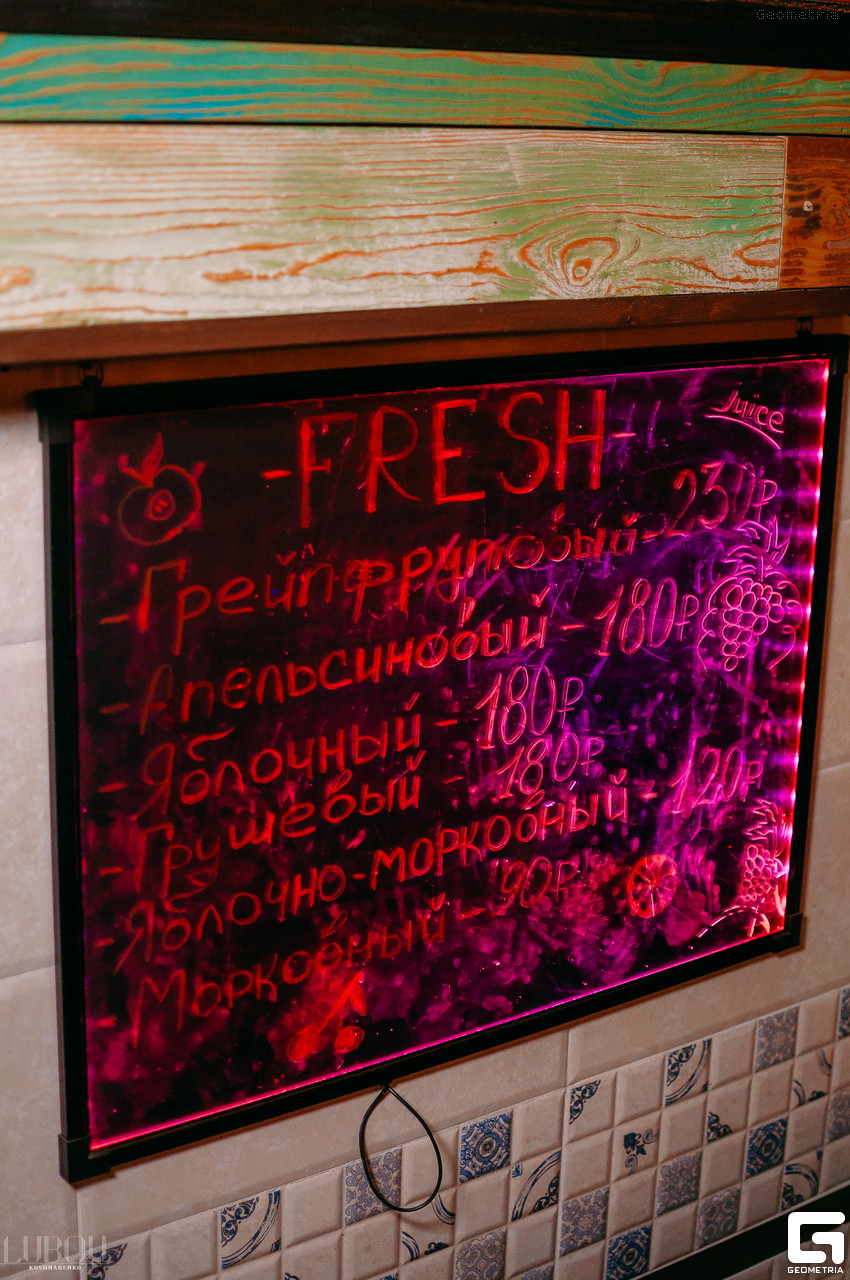 Geometria
-FRESH-
Juice
-Грейпфрутовый-230₽
-Апельсиновый-180₽
-Яблочный-180₽
-Грушевый-180₽
-Яблочно-морковный-120₽
-Морковный-90₽
LUBOU
KUSHNARENKO
GEOMETRIA